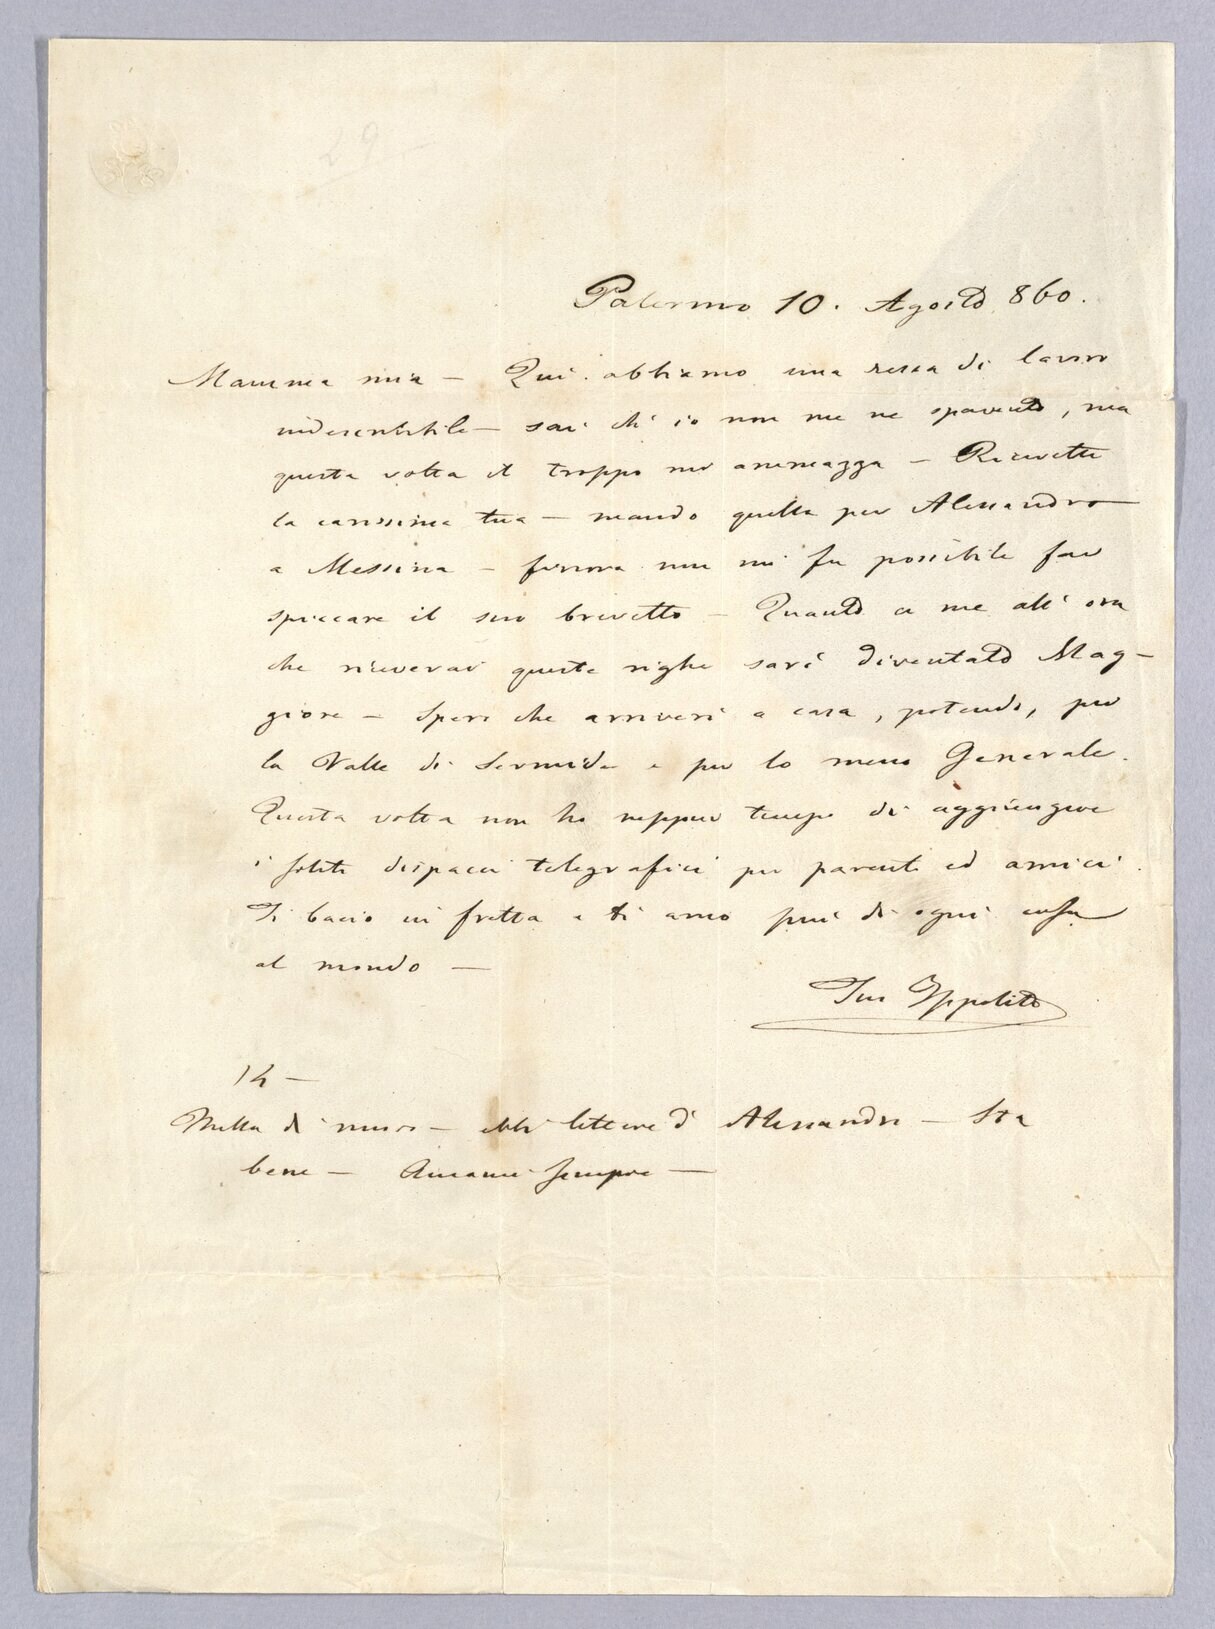 29 -
Palermo 10. Agosto 860.
Mamma mia — Qui abbiamo una ressa di lavoro
indescrivibile — sai ch' io non me ne spavento, ma
questa volta il troppo mi ammazza — Ricevetti
la carissima tua — mando quella per Alessandro
a Messina — finora non mi fu possibile far
spiccare il suo brevetto — Quanto a me all' ora
che riceverai queste righe sarò diventato Mag-
giore — Spero che arriverò a casa, potendo, per
la Valle di Sermide e per lo meno Generale.
Questa volta non ho neppur tempo di aggiungere
i soliti dispacci telegrafici per parenti ed amici.
Ti bacio in fretta e ti amo più di ogni cosa
al mondo —
Tuo Ippolito
14 —
Nulla di nuovo — ebbi lettere d' Alessandro — Sta
bene — Amami sempre —